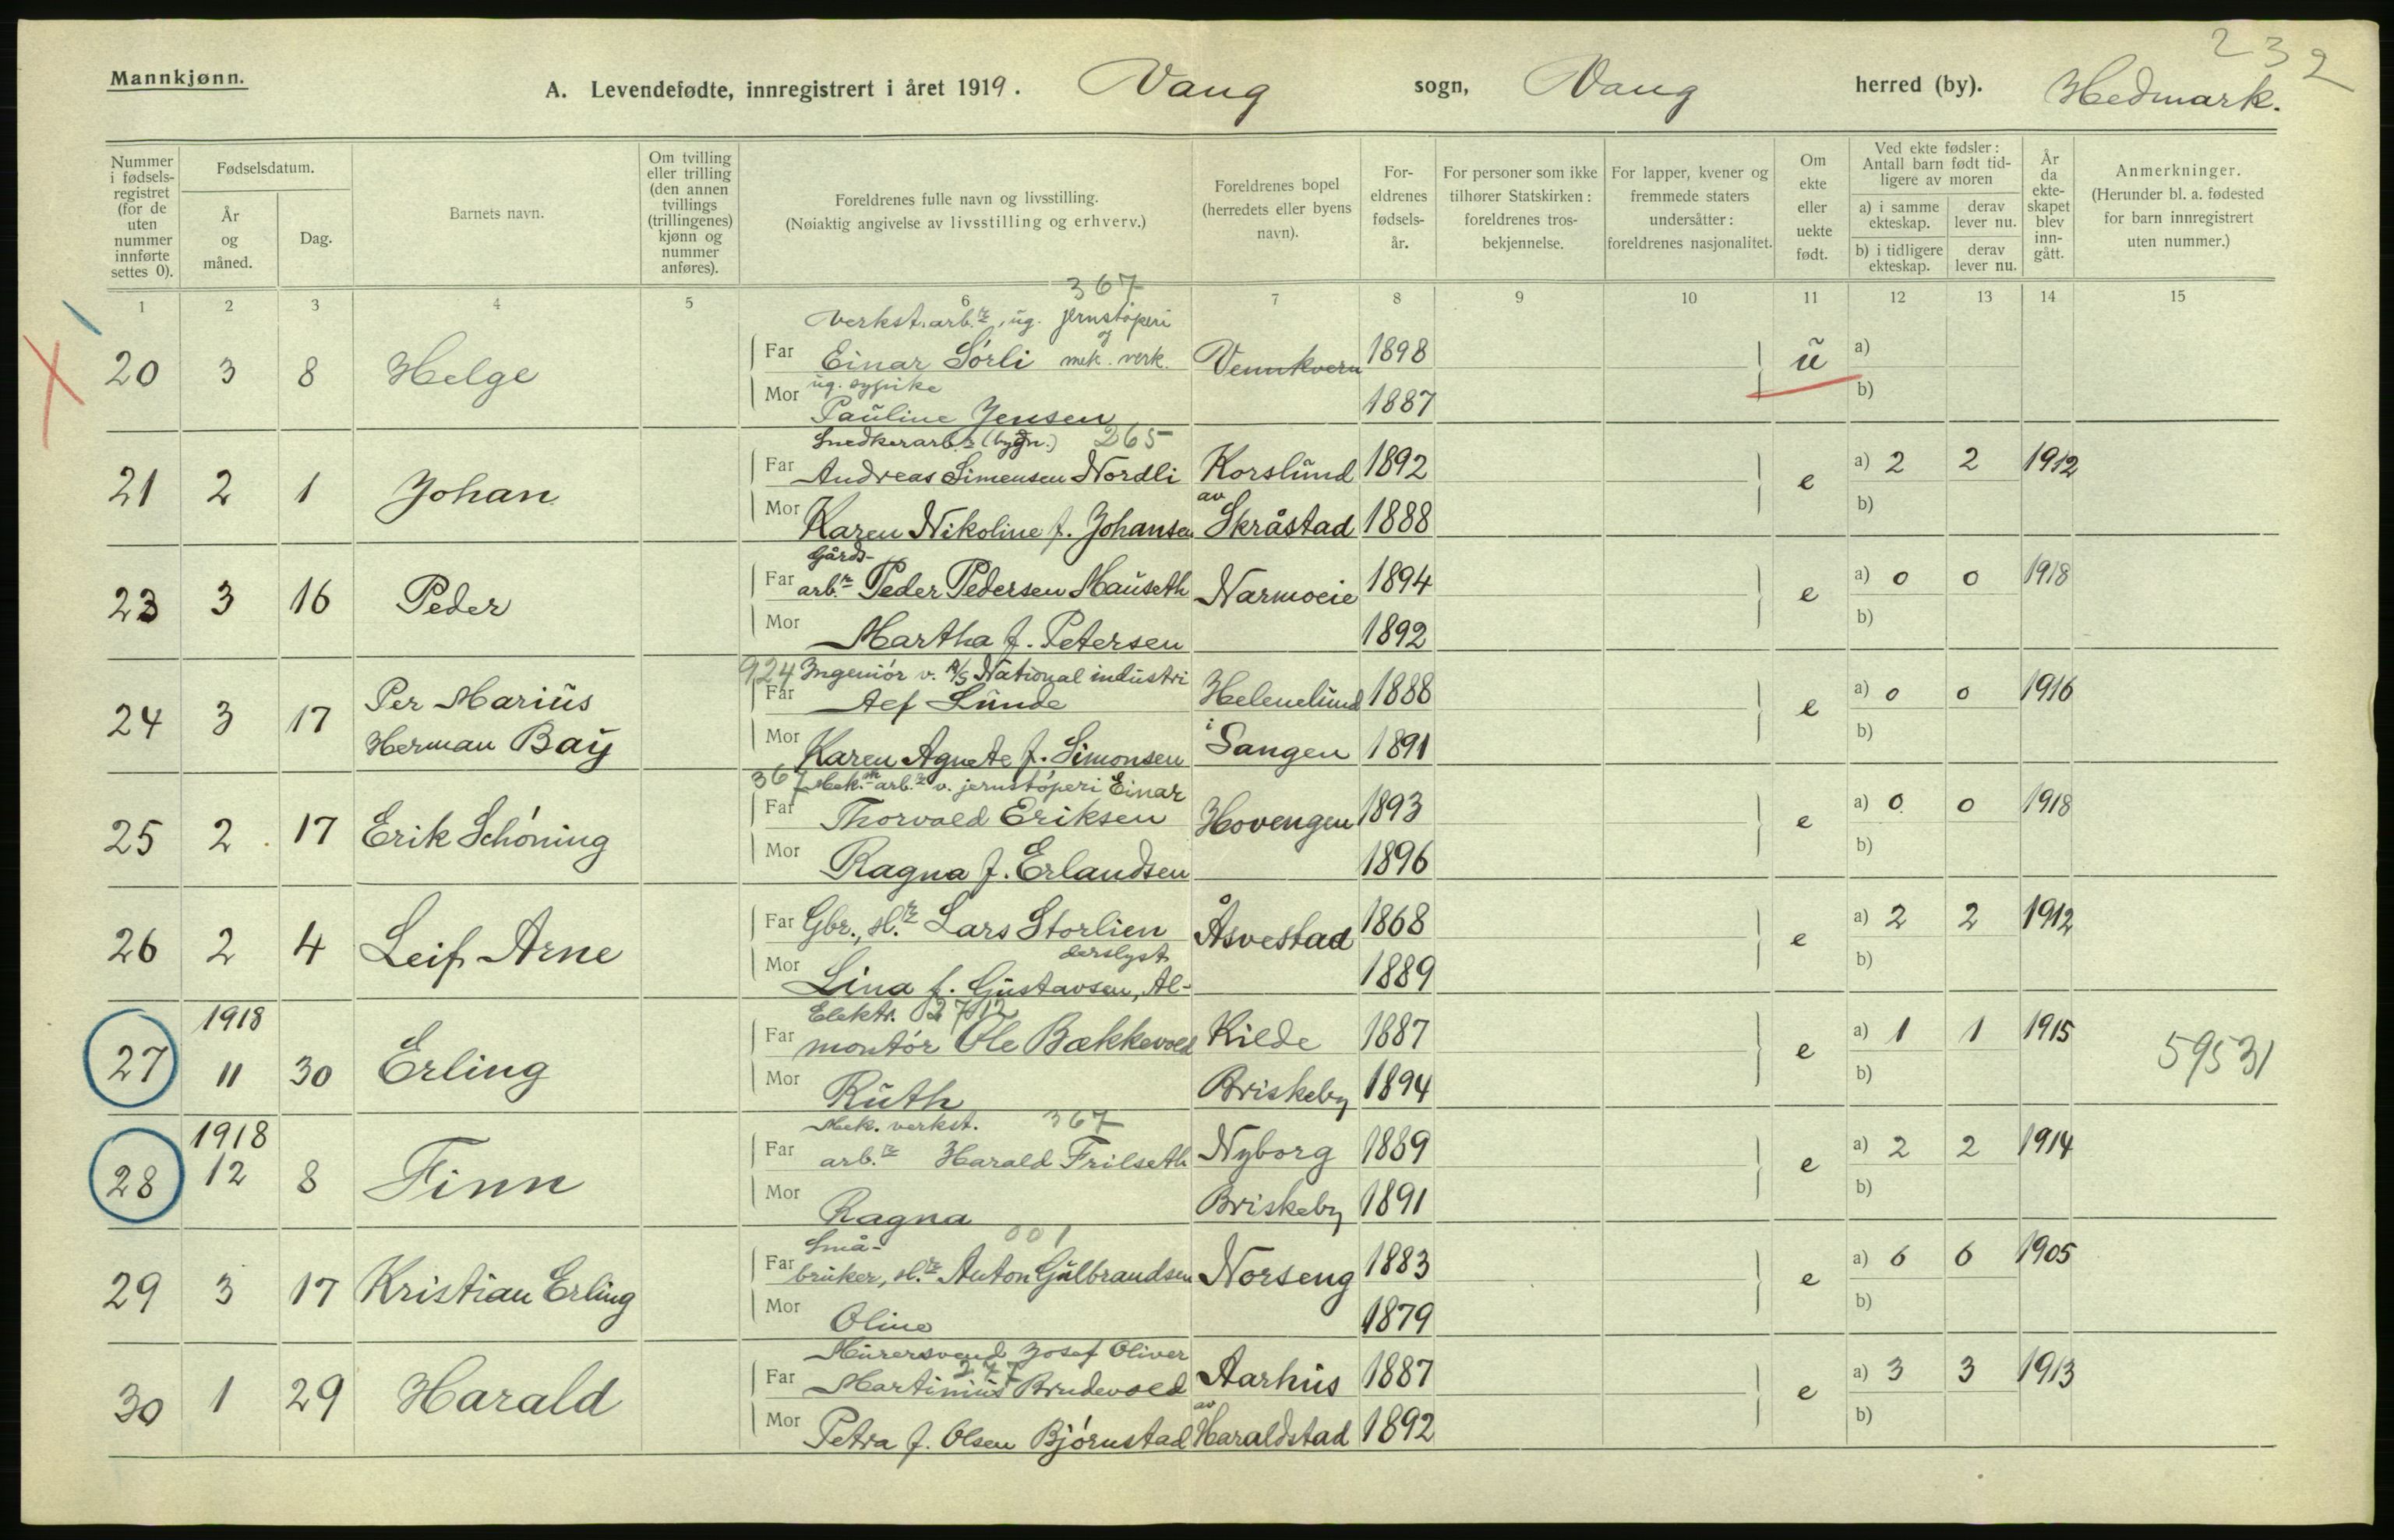 232
Mannkjønn.
A. Levendefødte, innregistrert i året 1919. Vang sogn, Vang herred (by). Hedmark.
Nummer i fødselsregistret (for de uten nummer innførte settes 0).
Fødselsdatum.
År og måned.
Dag.
Barnets navn.
Om tvilling eller trilling (den annen tvillings (trillingenes) kjønn og nummer anføres).
Foreldrenes fulle navn og livsstilling.
(Nøiaktig angivelse av livsstilling og erhverv.)
Foreldrenes bopel (herredets eller byens navn).
Foreldrenes fødselsår.
For personer som ikke tilhører Statskirken: foreldrenes trosbekjennelse.
For lapper, kvener og fremmede staters undersåtter: foreldrenes nasjonalitet.
Om ekte eller uekte født.
Ved ekte fødsler: Antall barn født tidligere av moren
a) i samme ekteskap. derav lever nu.
b) i tidligere ekteskap. derav lever nu.
År da ekteskapet blev inngått.
Anmerkninger.
(Herunder bl. a. fødested for barn innregistrert uten nummer.)
1 2 3 4 5 6 7 8 9 10 11 12 13 14 15
367
Verkst.arb.r, ug. jernstøperi
20 3 8 Helge Far Einar Sørli og mek. verk. Vennkvern 1898 u a)
ug. sypike
Mor Pauline Jensen 1887 b)
Snedkerarb.r (bygn.) 265
21 2 1 Johan Far Andreas Simensen Nordli Korslund 1892 e a) 2 2 1912
Mor Karen Nikoline f. Johansen av Skråstad 1888 b)
Gårds-
23 3 16 Peder Far arb.r Peder Pedersen Mauseth Narmoeie 1894 e a) 0 0 1918
Mor Martha f. Petersen 1892 b)
924 Ingeniør v. A/S National industri
24 3 17 Per Marius Herman Bay Far Aef Lunde Helenelund 1888 e a) 0 0 1916
Mor Karen Agnete f. Simonsen i Sangen 1891 b)
367 Mek. arb.r v. jernstøperi Einar
25 2 17 Erik Schøning Far Thorvald Eriksen Hovengen 1893 e a) 0 0 1918
Mor Ragna f. Erlandsen 1896 b)
26 2 4 Leif Arne Far Gbr., sl.r Lars Storlien Åsvestad 1868 e a) 2 2 1912
derslyst
Mor Lina f. Gustavsen, Al- 1889 b)
1918 Elektr.
27 11 30 Erling Far montør Ole Bækkevold Kilde 1887 e a) 1 1 1915 59531
Mor Ruth Briskeby 1894 b)
1918 Mek. verkst. 367
28 12 8 Finn Far arb.r Harald Frilseth Nyborg 1889 e a) 2 2 1914
Mor Ragna Briskeby 1891 b)
Små- 001
29 3 17 Kristian Erling Far bruker, sl.r Anton Gulbrandsen Norseng 1883 e a) 6 6 1905
Mor Oline 1879 b)
Murersvend Josef Oliver
277
30 1 29 Harald Far Martinius Brudevold Aarhus 1887 e a) 3 3 1913
Mor Petra f. Olsen Bjørnstad av Haraldstad 1892 b)